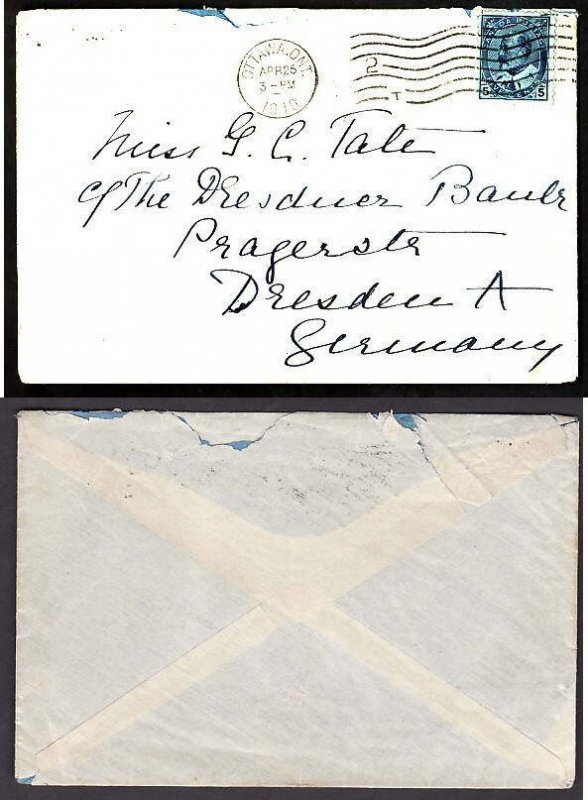 OTTAWA, ONT.
APR 25
3 - PM
1910
2
T
5 5
Miss G. C. Tate
c/ The Dresdner Bank
Pragerstr
Dresden A
Germany